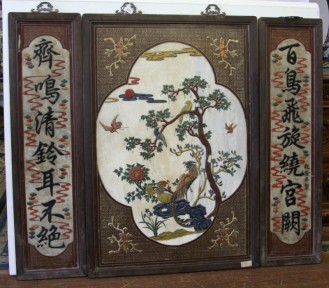 百鳥飛旋繞宮闕
齊鳴清鈴耳不絕